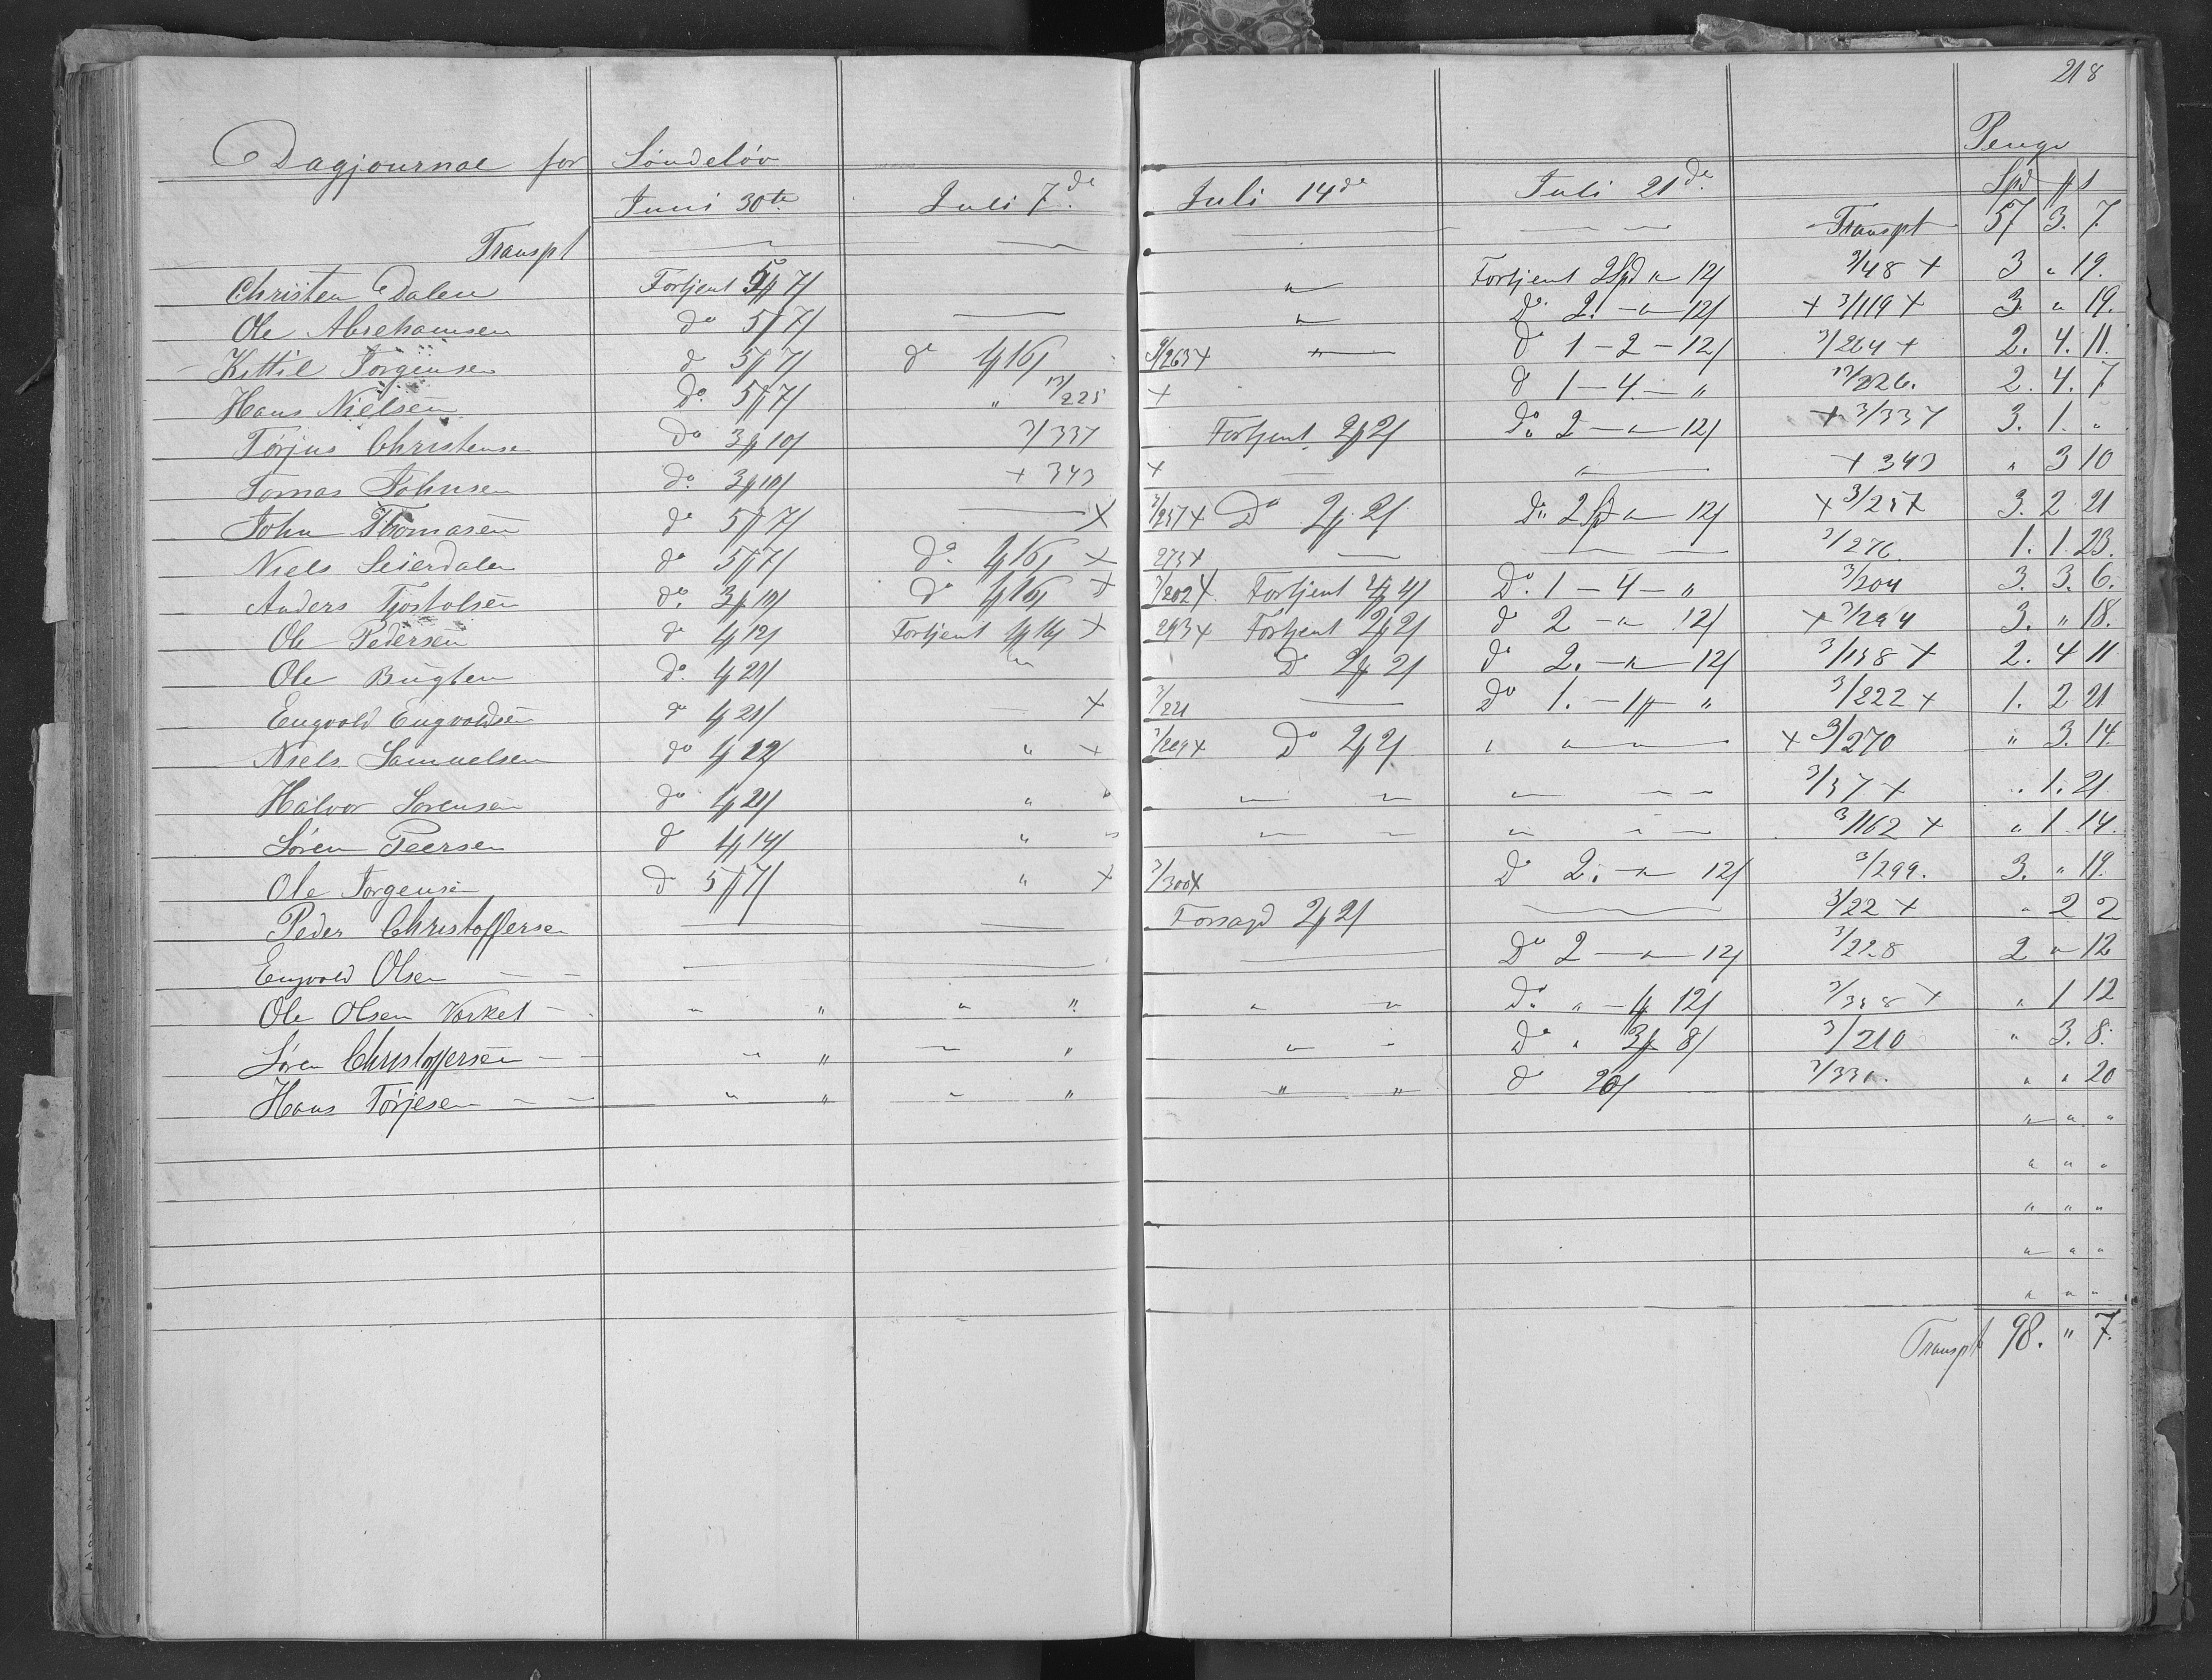 218
Dagjournal for Söndelöv Penge
Juni 30te Juli 7de Juli 14de Juli 21de Spd ß
Transpt Transpt 57 3. 7.
Christen Dalen Fortjent 5 7 " Fortjent 2 Spd " 12 3/48 + 3 " 19.
Ole Abrehamsen do 5 7 " Do 2. " 12 + 3/119 + 3. " 19.
Kittil Jörgensen do 5 7 do 1 16 3/263 + " do 1 - 2 - 12 3/264 + 2. 4. 11.
Hans Nielsen Do. 5 7 " 225 + do 1 - 4 - " 226. 2. 4. 7
Törjus Christensen Do 3 10 3/337 Fortjent 2 2 Do 2 - " 12 + 3/337 3. 1. "
Tomas Johnsen Do. 3 10 + 343 + " + 343 " 3 10
John Thomasen do 5 7 + 3/257 + Do 2 2 Do 2 Spd " 12 + 3/257 3. 2 21
Niels Seierdalen do 5 7 Do. 1 16 + 275 + 3/276 1. 1. 23.
Anders Tjostolsen do. 3 10 Do 1 16 + 3/202 + Fortjent 4 4 Do. 1 - 4 - " 3/204 3. 3. 6.
Ole Pedersen do 1 12 Fortjent 1 16 + 293 + Fortjent 2 2 do 2 - " 12 + 3/294 3. " 18.
Ole Bugten do. 1 21 " Do 2 2 do 2. - " 12 3/158 + 2. 4 11
Engvold Engvoldsen do 1 21 + 3/221 Do 1. - 1 " 3/222 + 1. 2 21
Niels Samuelsen do 1 12 " + 3/269 + Do 2 2 " " " + 3/270 " 3. 14.
Halvor Sorensen do 1 21 " " " " " 3/57 + " 1. 21.
Sören Peersen do 1 14 " " " " " 3/162 + " 1. 14.
Ole Jorgensen do 5 7 " + 3/300 + Do 2. - " 12 3/299. 3. " 19.
Peder Christoffersen 2 2 3/22 + " 2 2
Engvold Olsen Do 2 - " 12 3/228 2 " 12
Ole Olsen Varket " " " " " " Do " - 1 12 + " 1 12
Sören Christoffersen " " " " " Do " 3 8 3/210 " 3. 8.
Hans Törjesen " " " " " " do 20 " " 20
" " "
" " "
" " "
" " "
" " "
Transpt 98. " 7.